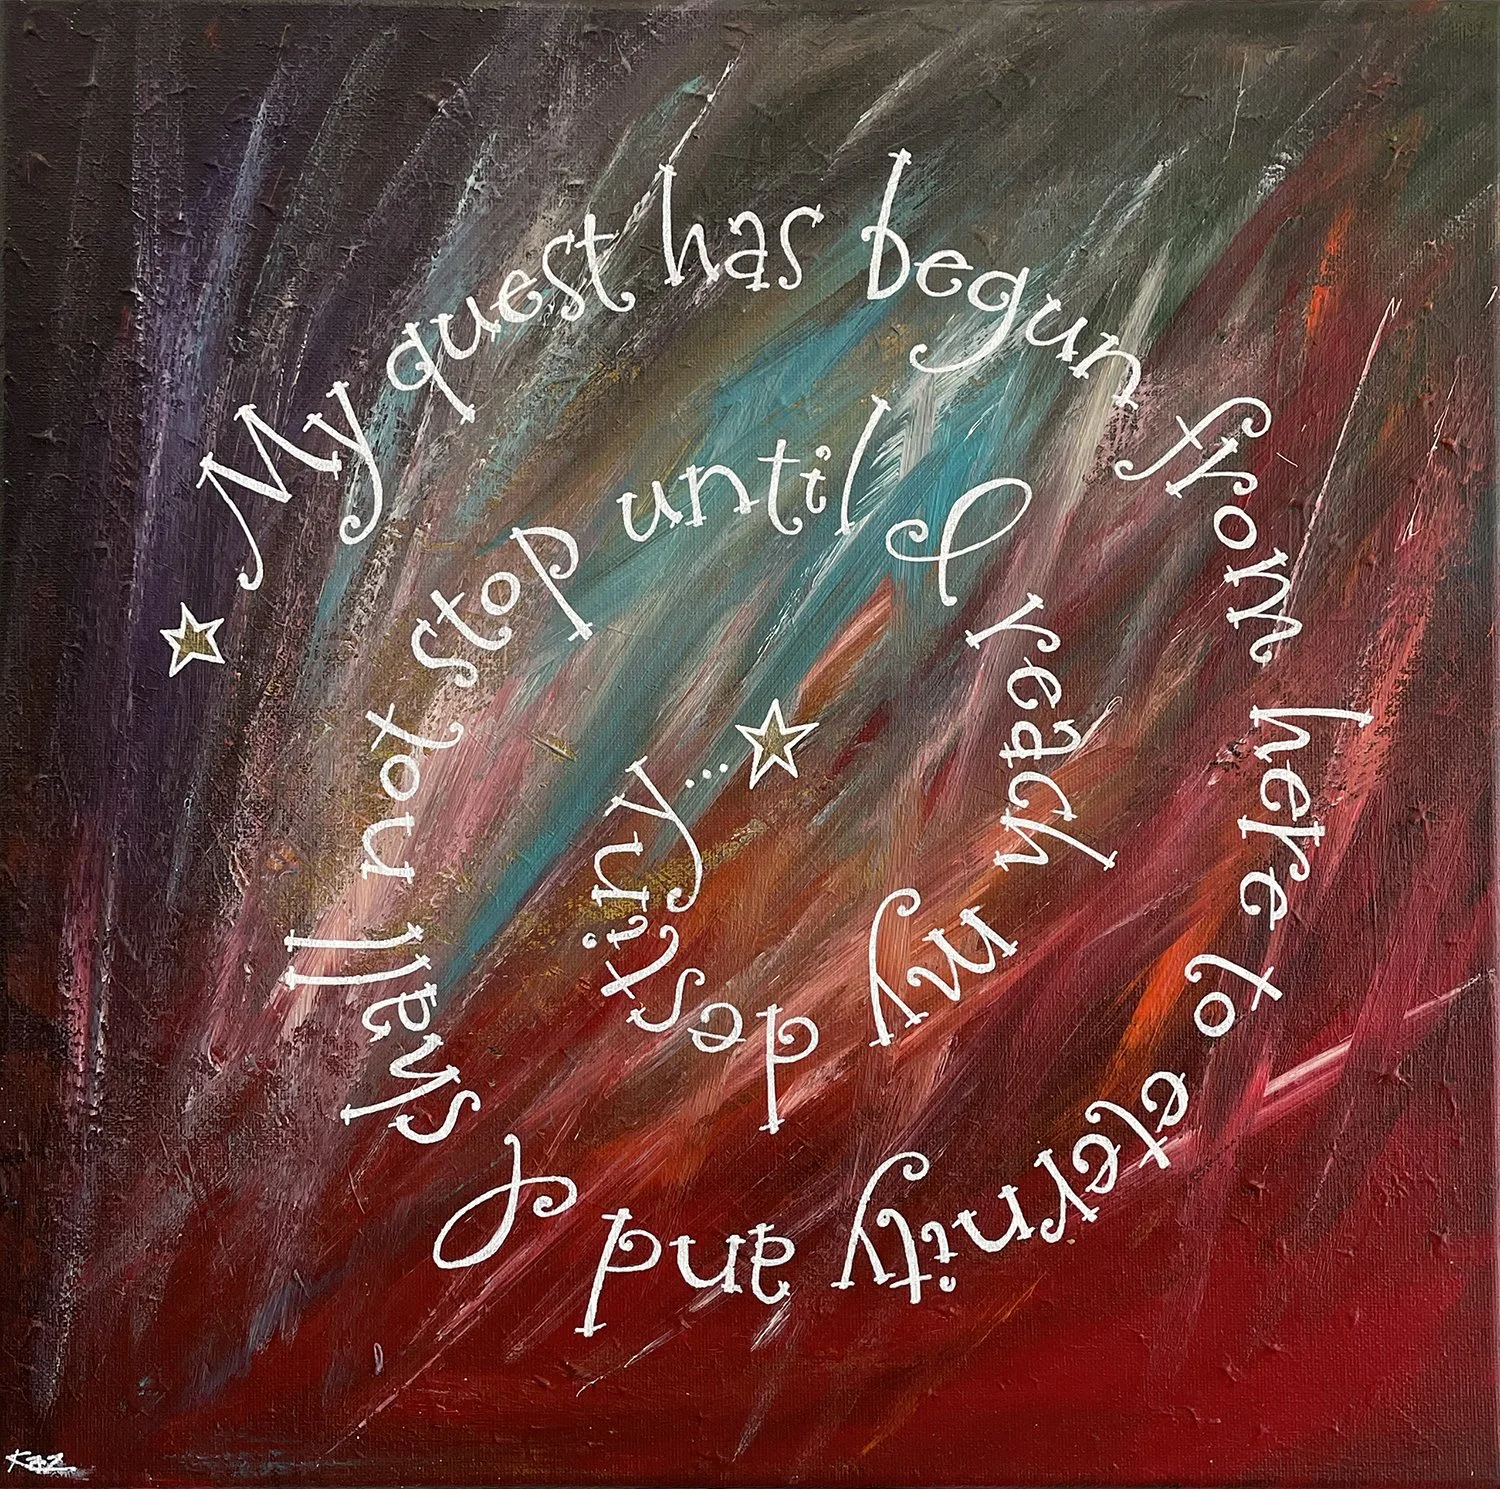 My quest has begun from here to eternity and I shall not stop until I reach my destiny...
Kaz